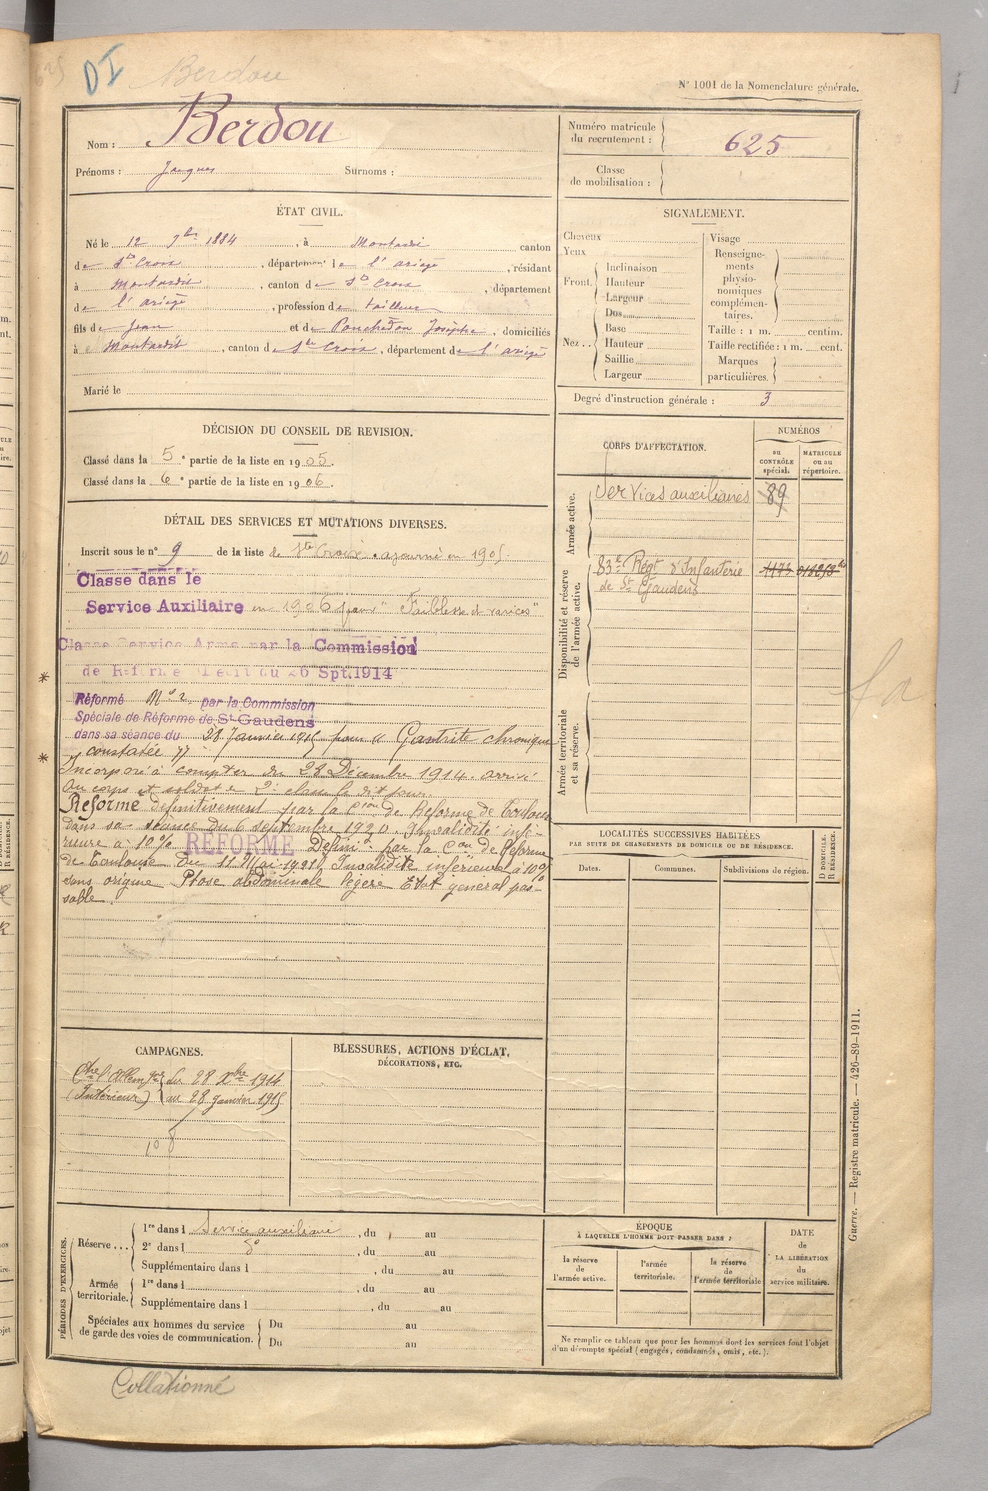 DI
Berdou
N° 1001 de la Nomenclature générale.
Nom : Berdou
Prénoms : Jacques Surnoms :
Numéro matricule du recrutement : 625
Classe de mobilisation :
ÉTAT CIVIL.
Né le 12 7bre 1884, à Montardit canton
de Ste Croix, département de l'ariège, résidant
à Montardit, canton de Ste Croix, département
de l'ariège, profession de tailleur
fils de Jean et de Pouchedon Josèphe, domiciliés
à Montardit, canton de Ste Croix, département de l'ariège
Marié le
SIGNALEMENT.
Cheveux
Yeux
Front. Inclinaison
Hauteur
Largeur
Nez.. Dos
Base
Hauteur
Saillie
Largeur
Visage
Renseigne-
ments
physio-
nomiques
complémen-
taires.
Taille : 1 m. centim.
Taille rectifiée : 1 m. cent.
Marques
particulières.
Degré d'instruction générale : 3
DÉCISION DU CONSEIL DE REVISION.
Classé dans la 5e partie de la liste en 1905.
Classé dans la 6e partie de la liste en 1906.
DÉTAIL DES SERVICES ET MUTATIONS DIVERSES.
Inscrit sous le n° 9 de la liste de Ste Croix. ajourné en 1905.
Classé dans le
Service Auxiliaire en 1906 pour "Faiblesse et varices"
Classé Service Armé par la Commission
de Réforme du 26 Spt. 1914
Réformé N° 2 par la Commission
Spéciale de Réforme de St Gaudens
dans sa séance du 28 Janvier 1915 pour " Gastrite chronique
constatée "
Incorporé à compter du 28 Décembre 1914. arrivé
au corps et soldat de 2e classe le dit jour.
Réformé définitivement par la Cion de Réforme de Toulouse
dans sa séance du 6 septembre 1920. Invalidité infé-
rieure à 10% RÉFORMÉ Définif par la Con de Réforme
de Toulouse du 11 Mai 1921 Invalidité inférieure à 10%
sans origine Ptose abdominale légère Etat général pas-
sable.
CORPS D'AFFECTATION.
NUMÉROS
au CONTRÔLE spécial.
MATRICULE ou au répertoire.
Armée active.
Services auxiliaires 89
Disponibilité et réserve de l'armée active.
83e Régt d'Infanterie
de St Gaudens
Armée territoriale et sa réserve.
LOCALITÉS SUCCESSIVES HABITÉES
PAR SUITE DE CHANGEMENTS DE DOMICILE OU DE RÉSIDENCE.
Dates. Communes. Subdivisions de région. D DOMICILE. R RÉSIDENCE.
CAMPAGNES.
Cbre l'Allemagne du 28 Xbre 1914
(Intérieur) au 28 janvier 1915
BLESSURES, ACTIONS D'ÉCLAT,
DÉCORATIONS, ETC.
PÉRIODES D'EXERCICES.
Réserve... 1re dans l Service auxiliaire, du au
2e dans l do, du au
Supplémentaire dans l, du au
Armée territoriale. 1re dans l, du au
Supplémentaire dans l, du au
Spéciales aux hommes du service
de garde des voies de communication. Du au
Du au
ÉPOQUE
À LAQUELLE L'HOMME DOIT PASSER DANS :
la réserve de l'armée active.
l'armée territoriale.
la réserve de l'armée territoriale
DATE de LA LIBÉRATION du service militaire.
Ne remplir ce tableau que pour les hommes dont les services font l'objet
d'un décompte spécial (engagés, condamnés, omis, etc.).
Guerre. — Registre matricule. — 426-89-1911.
Collationné